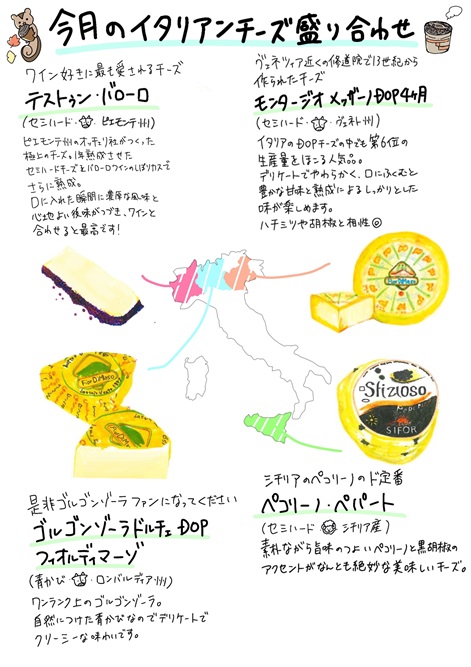 今月のイタリアンチーズ盛り合わせ
ワイン好きに最も愛されるチーズ
テストゥン・バローロ
(セミハード・ピエモンテ州)
ピエモンテ州のオッチェリ社がつくった
極上のチーズ。1年熟成させた
セミハードチーズをバローロワインのしぼりカスで
さらに熟成。
口に入れた瞬間に濃厚な風味と
心地よい後味がつづき、ワインと
合わせると最高です!
ヴェネツィア近くの修道院で13世紀から
作られたチーズ
モンタージオ メッザーノDOP4ヶ月
(セミハード・ヴェネト州)
イタリアのDOPチーズの中でも第6位の
生産量をほこる人気品。
デリケートでやわらかく、口にふくむと
豊かな甘味と熟成によるしっかりとした
味が楽しめます。
ハチミツや胡椒と相性◎
Sfizioso
SIFOR
是非ゴルゴンゾーラファンになってください
ゴルゴンゾーラドルチェ DOP
フィオルディマーゾ
(青かび・ロンバルディア州)
ワンランク上のゴルゴンゾーラ。
自然につけた青かびなのでデリケートで
クリーミーな味わいです。
シチリアのペコリーノのド定番
ペコリーノ・ペパート
(セミハード シチリア産)
素朴ながら旨味のつよいペコリーノと黒胡椒の
アクセントがなんとも絶妙な美味しいチーズ。